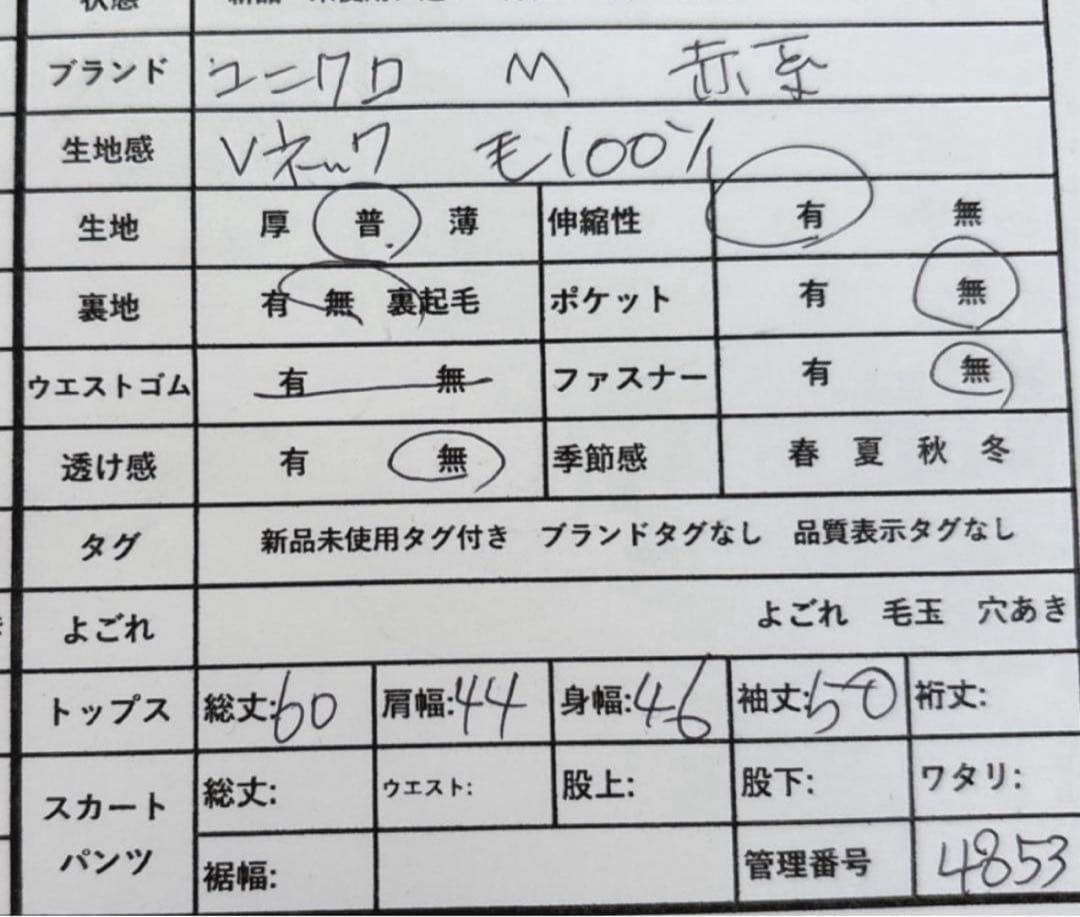 ブランド ユニクロ M 赤系
生地感 Vネック 毛100%
生地 厚 普 薄 伸縮性 有 無
裏地 有 無 裏起毛 ポケット 有 無
ウエストゴム 有 無 ファスナー 有 無
透け感 有 無 季節感 春 夏 秋 冬
タグ 新品未使用タグ付き ブランドタグなし 品質表示タグなし
よごれ よごれ 毛玉 穴あき
トップス 総丈:60 肩幅:44 身幅:46 袖丈:50 裄丈:
スカート パンツ 総丈: ウエスト: 股上: 股下: ワタリ:
裾幅: 管理番号 4853